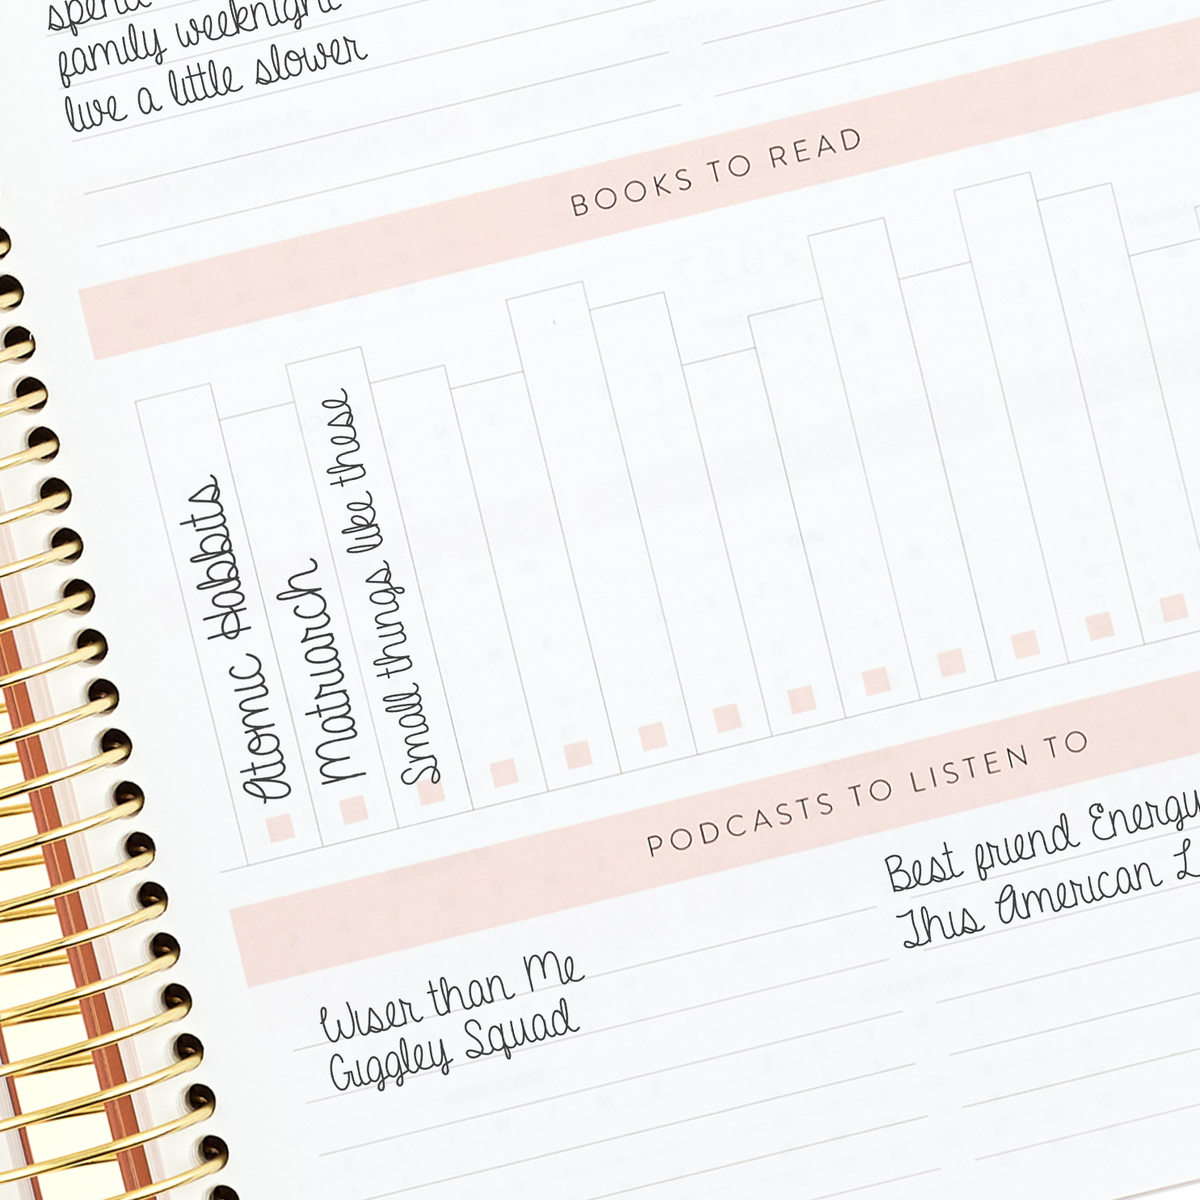 family weeknight
live a little slower
BOOKS TO READ
Atomic Habbits
Matriarch
Small things like these
PODCASTS TO LISTEN TO
Wiser than Me
Giggley Squad
Best friend Energy
This American L